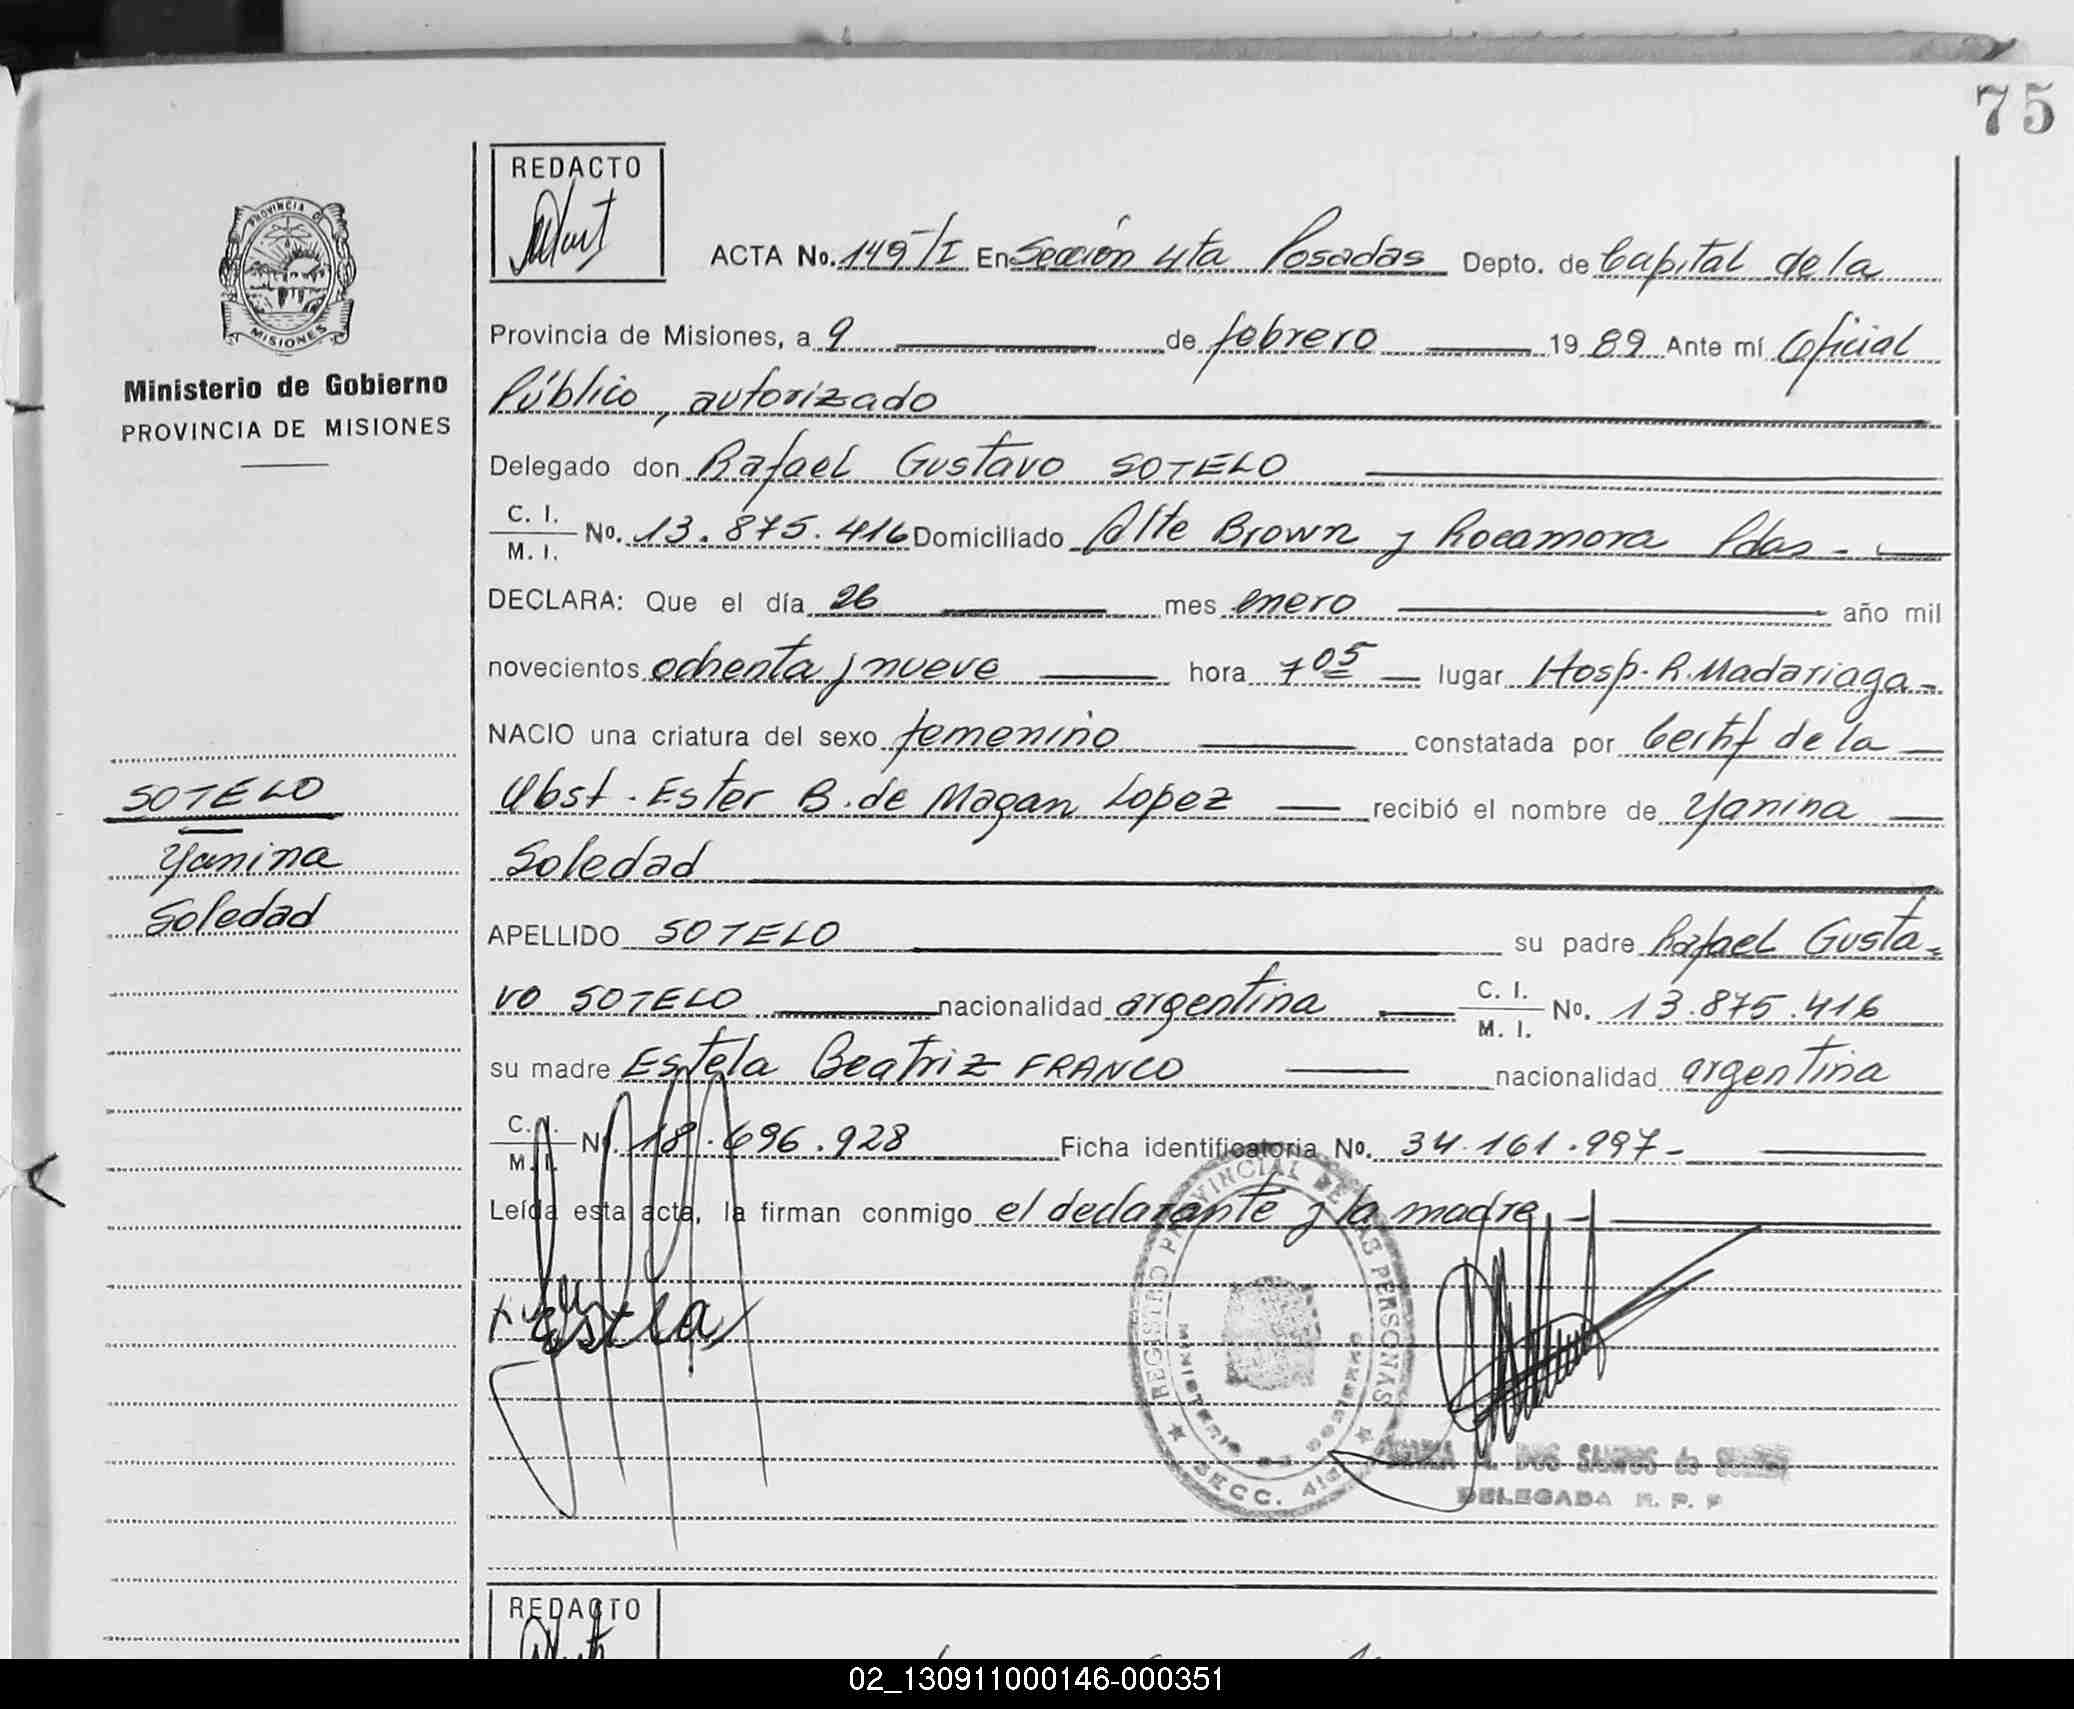 75
REDACTO
PROVINCIA DE
MISIONES
Ministerio de Gobierno
PROVINCIA DE MISIONES
SOTELO
Yanina
Soledad
ACTA No. 149/I En Sección 4ta Posadas Depto. de Capital de la
Provincia de Misiones, a 9 de febrero 1989 Ante mí Oficial
Público, autorizado
Delegado don Rafael Gustavo SOTELO
C. I. / M. I. No. 13.875.416 Domiciliado Alte Brown y Rocamora Pdas -
DECLARA: Que el día 26 mes enero año mil
novecientos ochenta y nueve hora 7 05 lugar Hosp. R. Madariaga -
NACIO una criatura del sexo femenino constatada por Certif de la
Obst. Ester B. de Magan Lopez recibió el nombre de Yanina
Soledad
APELLIDO SOTELO su padre Rafael Gusta-
vo SOTELO nacionalidad argentina C. I. / M. I. No. 13.875.416
su madre Estela Beatriz FRANCO nacionalidad argentina
C. I. / M. I. No. 18.696.928 Ficha identificatoria No. 34.161.997-
Leída esta acta, la firman conmigo el declarante y la madre -
Estela
REGISTRO PROVINCIAL DE LAS PERSONAS
MINISTERIO DE GOBIERNO
SECC. 4ta
DOS SANTOS de
DELEGADA R. P. P
REDACTO
02_130911000146-000351